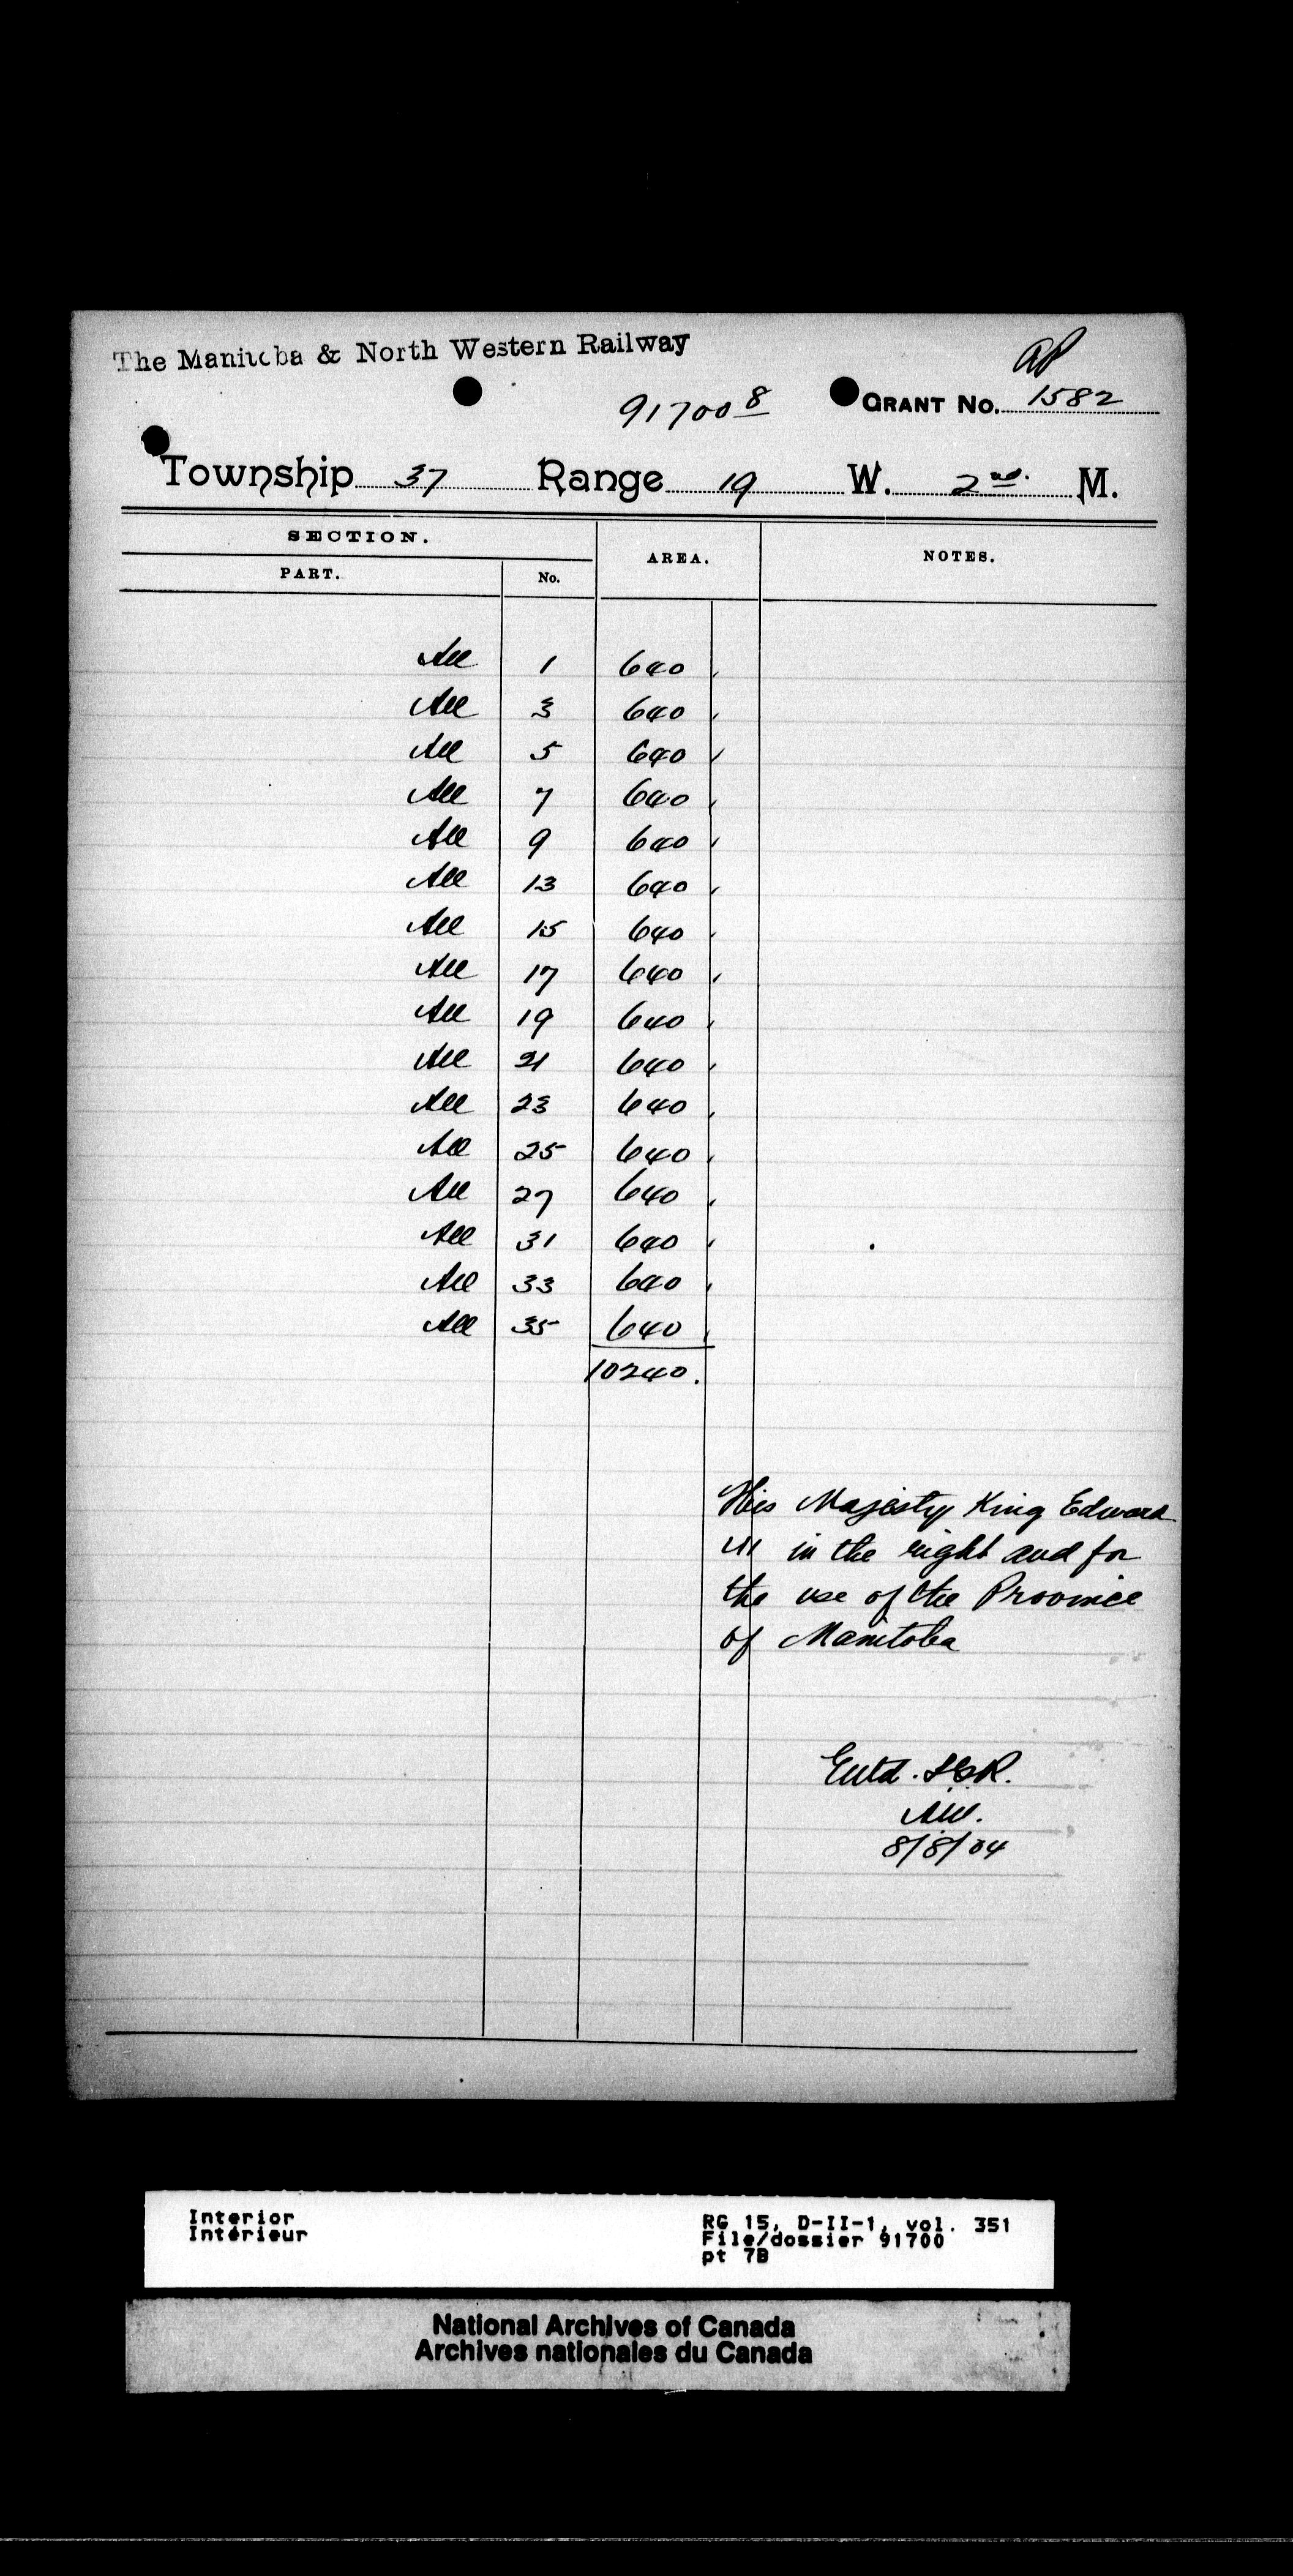 The Manitoba & North Western Railway
AP
91700 8
GRANT No. 1582
Township 37 Range 19 W. 2nd. M.
SECTION.
PART. No. AREA. NOTES.
All 1 640
All 3 640
All 5 640
All 7 640
All 9 640
All 13 640
All 15 640
All 17 640
All 19 640
All 21 640
All 23 640
All 25 640
All 27 640
All 31 640
All 33 640
All 35 640
10240.
His Majesty King Edward
VII in the right and for
the use of the Province
of Manitoba
Entd. L.G.R.
8/8/04
Interior
Intérieur
RG 15, D-II-1, vol. 351
File/dossier 91700
pt 7B
National Archives of Canada
Archives nationales du Canada